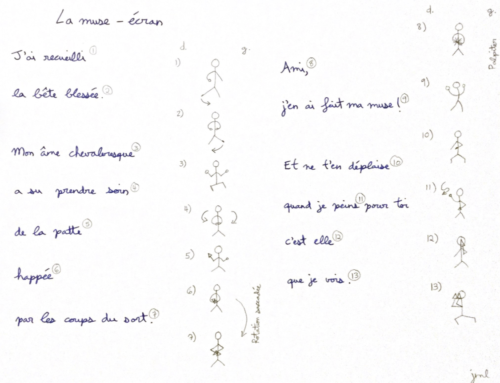 La muse-écran
d. g.
1)
J'ai recueilli ①
la bête blessée. ②
2)
Mon âme chevaleresque ③
3)
a su prendre soin ④
4)
de la patte ⑤
5)
happée ⑥
6)
par les coups du sort. ⑦
7)
Rotation ensemble
d. g.
8)
Palpiter
Ami, ⑧
9)
j'en ai fait ma muse! ⑨
10)
Et ne t'en déplaise ⑩
11)
quand je peins pour toi ⑪
12)
c'est elle ⑫
que je vois. ⑬
13)